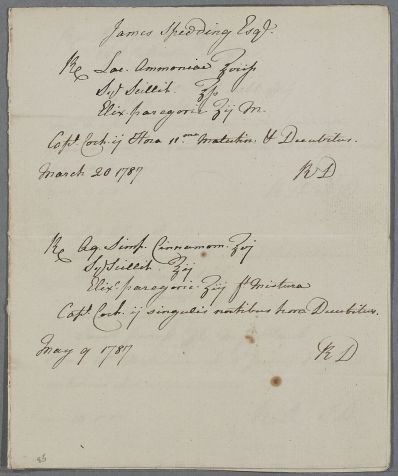 James Spedding Esqr.
Rx Lac. Ammoniac ℥viiß
Syr Scillit. ℥ß
Elix paregoric ʒij M.
Capt. Coch. ij Hora 11me Matutin & Decubitus.
March 20 1787 RD
Rx Aq. Simp. Cinnamom. ℥vj
Syr Scillit. ℥ij
Elixr. paregoric. ʒij ft Mistura
Capt. Coch. ij singulis noctibus hora Decubitus.
May 9 1787 RD